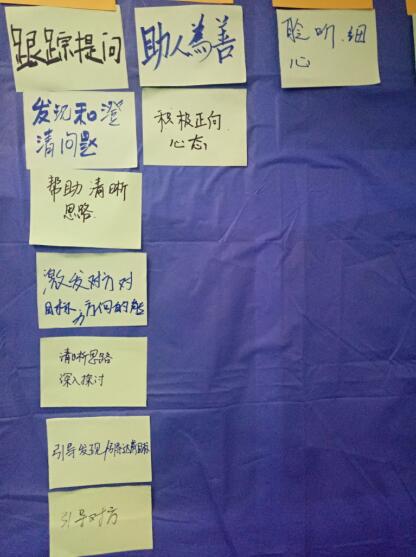 跟踪提问
助人為善
聆听、细
心
发现和澄
清问题
积极正向
心态
帮助清晰
思路
激发对方对
目标、方向的
清晰思路
深入探讨
引导发现
引导对方